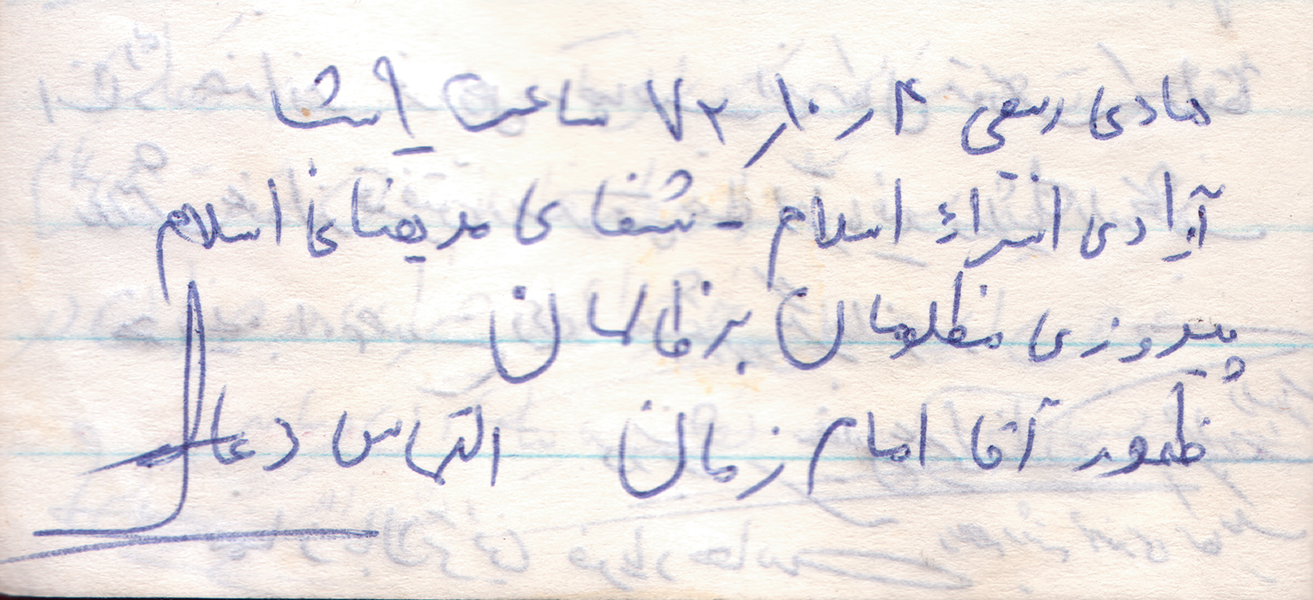 هادی رسعی ۴ ر ۱۰ ر ۷۲ ساعت ۹ شب
آزادی اسراء اسلام - شفای مریضان اسلام
پیروزی مظلومان بر ظالمان
ظهور آقا امام زمان التماس دعا